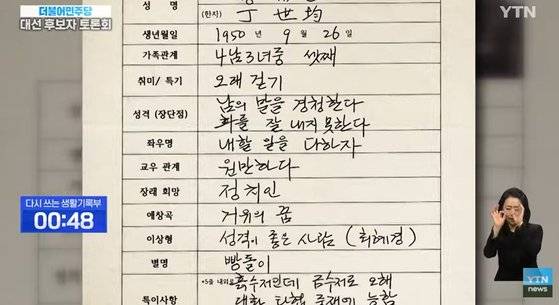 더불어민주당
대선 후보자 토론회
YTN
성 명
(한자) 丁世均
생년월일 1950 년 9 월 26 일
가족관계 4남3녀중 셋째
취미/ 특기 오래 걷기
성격 (장단점) 남의 말을 경청한다
화를 잘 내지 못한다
좌우명 내할 일을 다하자
교우 관계 원만하다
장래 희망 정치인
애창곡 거위의 꿈
이상형 성격이 좋은 사람 (최혜경)
별명 빵돌이
특이사항 *5줄 내외로 흙수저인데 금수저로 오해
대화 타협 중재에 능함
다시 쓰는 생활기록부
00:48
YTN
news